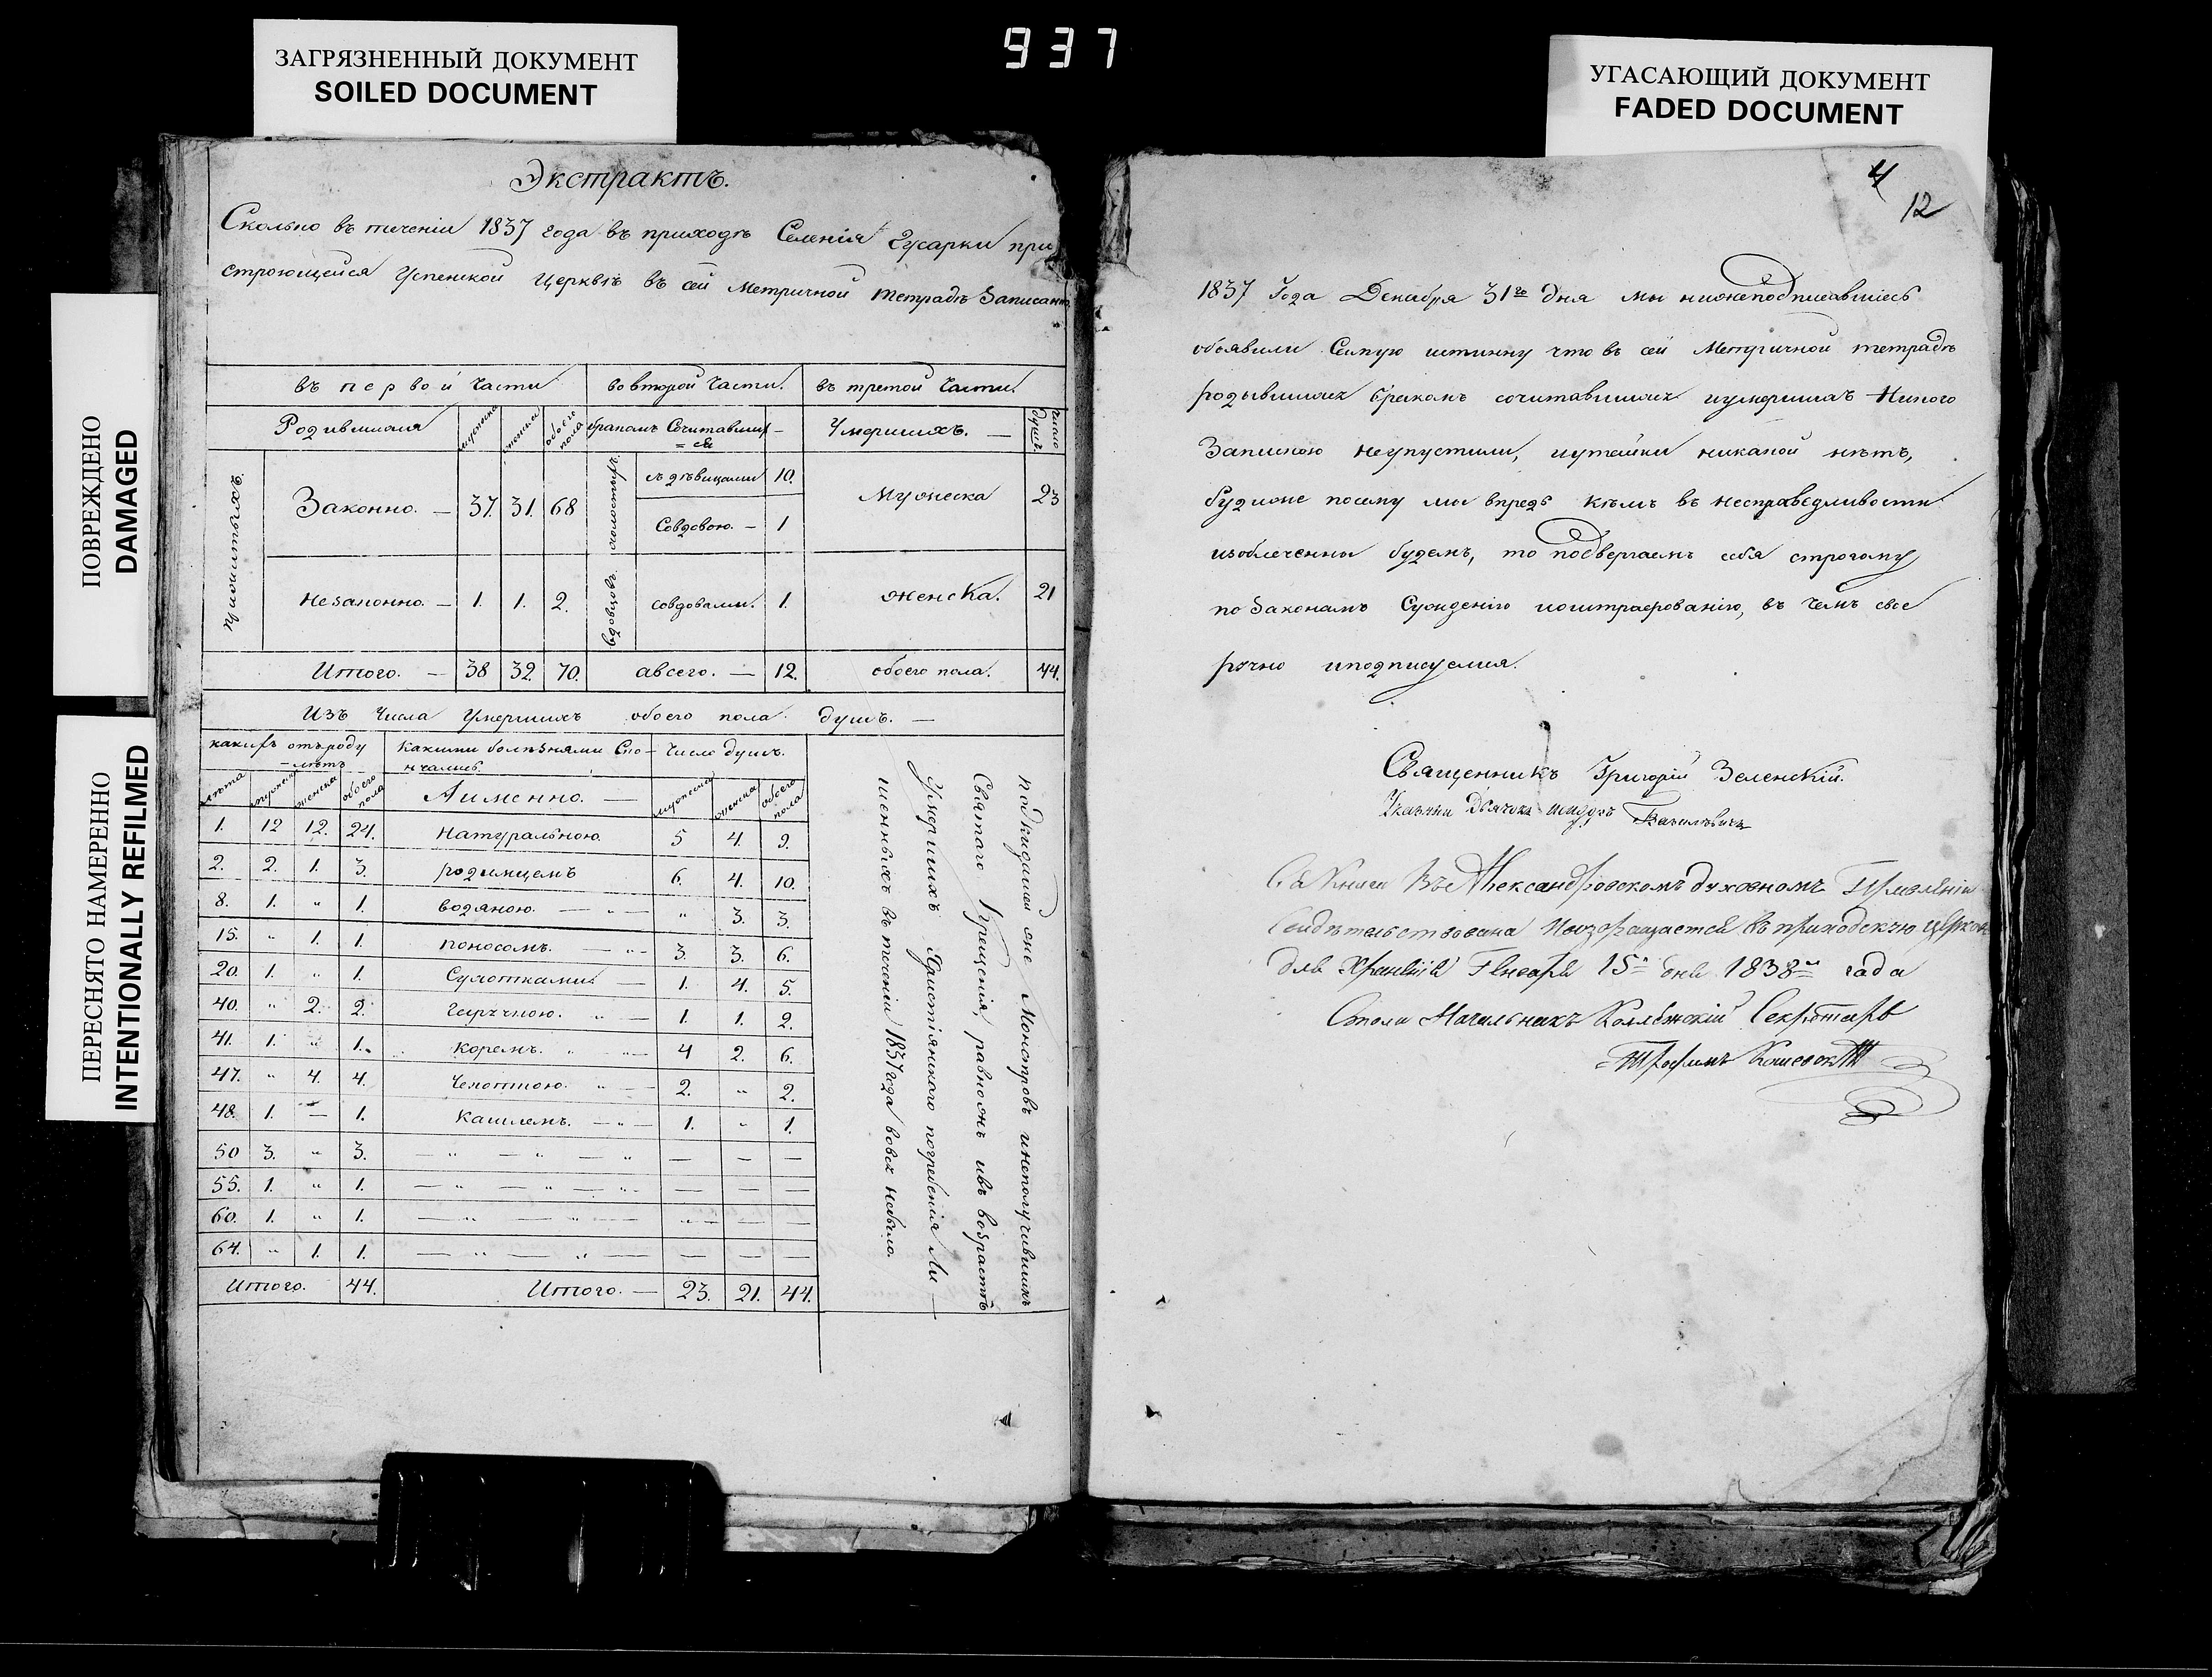 937
ЗАГРЯЗНЕННЫЙ ДОКУМЕНТ
SOILED DOCUMENT
УГАСАЮЩИЙ ДОКУМЕНТ
FADED DOCUMENT
ПОВРЕЖДЕНО
DAMAGED
ПЕРЕСНЯТО НАМЕРЕННО
INTENTIONALLY REFILMED
Экстрактъ.
Сколько въ теченіи 1837 года въ приходѣ Селенія Гусарки при
строющейся Успенской Церквѣ въ сей Метричной тетрадѣ Записано
въ первой части во второй части. въ третой части.
Родившихся мужеска женска обоего пола бракомъ Сочитавших= ся Умершихъ. — число душъ
Законно. — 37. 31. 68 съ дѣвицами 10. Мужеска 23
Совдовою. — 1
Незаконно. — 1. 1. 2. совдовами. 1. женска. 21
Итого. — 38 32. 70. авсего. — 12. обоего пола. 44.
Изъ Числа Умершихъ обоего пола душъ. —
какихъ отъ роду лѣтъ какими болѣзнями Ско-нчались. Число душъ.
лѣта мужеска женска обоего пола Аименно. — мужеска женска обоего пола
1. 12 12. 24. Натуральною. 5 4. 9.
2. 2. 1. 3. родимцемъ 6. 4. 10.
8. 1. " 1. водяною. — " — " 3. 3.
15. " 1. 1. поносомъ. — " - 3. 3. 6.
20. 1. " 1. Сухотками. — 1. 4. 5.
40. " 2. 2. Горячкою. " — 1. 1. 2.
41. 1. " 1. Коремъ. " " — 4 2. 6.
47. " 4. 4. Чехоткою. " — 2. " 2.
48. 1. — 1. Кашлемъ. — " — 1. " 1.
50 3. " 3. — " — " — " — — —
55. 1. " 1. — " — " — " — — — —
60. 1. " 1. — " — " — " — — —
64. " 1. 1. — " — " — — — —
Итого. 44. Итого. — 23. 21. 44.
Подкидышей же Монстровъ инеполучившихъ
Святаго Крещенія, равножъ ивъ возрастѣ
Умершихъ Христіянкаго погребенія Ли —
шенныхъ въ теченіи 1837 года вовсе небыло.
4
12
1837 Года Декабря 31го дня мы нижеподписавшіесь
объявили Самую истинну что въ сей Метричной тетрадѣ
родывшихся бракомъ сочитавшихся иумершихъ Никого
Запискою неупустили, иутайки никакой нѣтъ,
будиже посему мы впредь кѣмъ въ несправедливости
изобличенны будемъ, то подвергаемъ себя строгому
по Законамъ Сужденію иоштрафованію, въ чемъ свое
ручно иподписуемся.
Священникъ Григорій Зеленскій.
Дьячокъ
Сія Книга Въ Александровскомъ духовномъ Правленіи
Свидѣтельствована Ивозвращается въ приходскую церковь
для Храненія Генваря 15го дня 1838го года
Стола Начальникъ Коллежскій Секретарь
Трофимъ